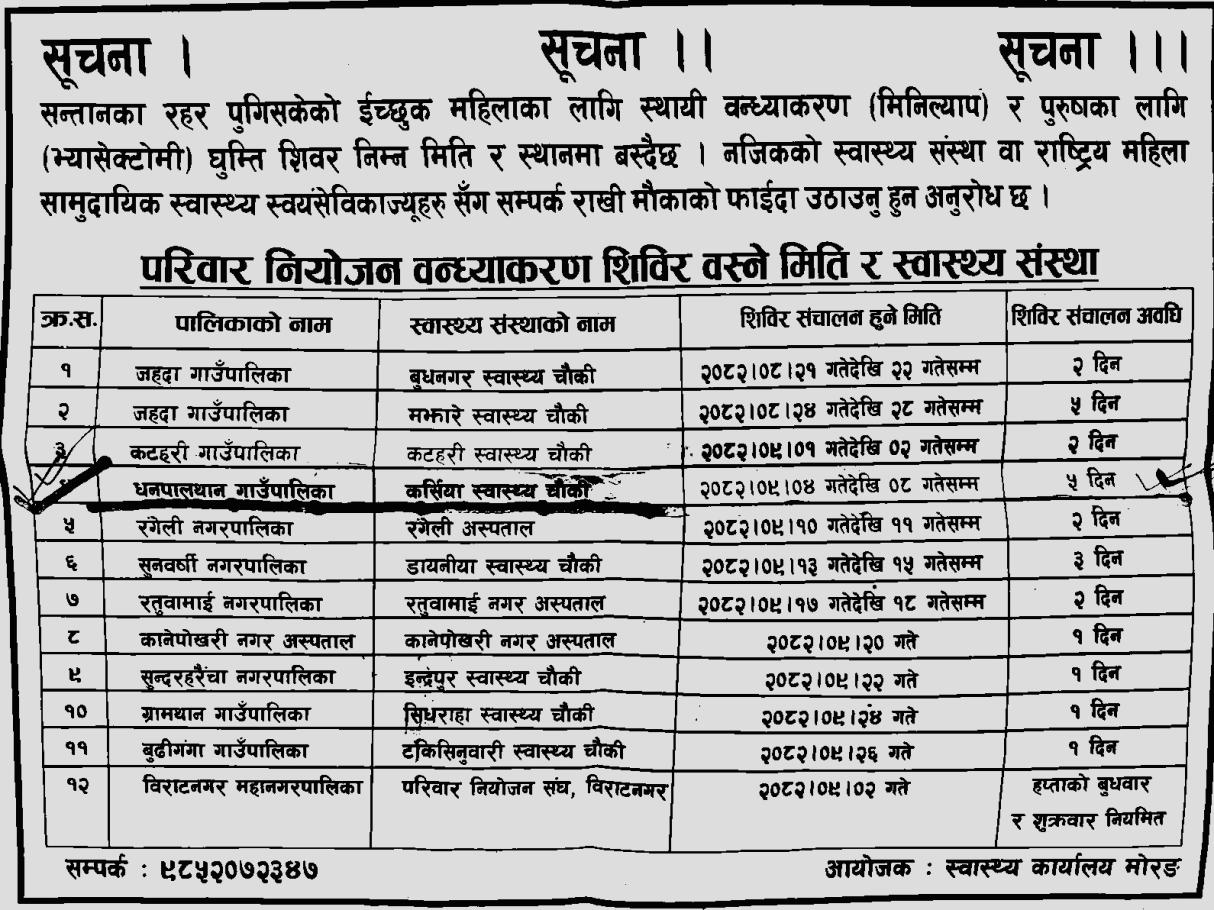 सूचना । सूचना ।। सूचना ।।।
सन्तानका रहर पुगिसकेको ईच्छुक महिलाका लागि स्थायी वन्ध्याकरण (मिनिल्याप) र पुरुषका लागि
(भ्यासेक्टोमी) घुम्ति शिवर निम्न मिति र स्थानमा बस्दैछ । नजिकको स्वास्थ्य संस्था वा राष्ट्रिय महिला
सामुदायिक स्वास्थ्य स्वयंसेविकाज्यूहरु सँग सम्पर्क राखी मौकाको फाईदा उठाउनु हुन अनुरोध छ ।
परिवार नियोजन वन्ध्याकरण शिविर वस्ने मिति र स्वास्थ्य संस्था
क्र.स. पालिकाको नाम स्वास्थ्य संस्थाको नाम शिविर संचालन हुने मिति शिविर संचालन अवधि
१ जहदा गाउँपालिका बुधनगर स्वास्थ्य चौकी २०८२।०८।२१ गतेदेखि २२ गतेसम्म २ दिन
२ जहदा गाउँपालिका मझारे स्वास्थ्य चौकी २०८२।०८।२४ गतेदेखि २८ गतेसम्म ५ दिन
३ कटहरी गाउँपालिका कटहरी स्वास्थ्य चौकी २०८२।०९।०१ गतेदेखि ०२ गतेसम्म २ दिन
धनपालथान गाउँपालिका कर्सिया स्वास्थ्य चौकी २०८२।०९।०४ गतेदेखि ०८ गतेसम्म ५ दिन
५ रंगेली नगरपालिका रंगेली अस्पताल २०८२।०९।१० गतेदेखि ११ गतेसम्म २ दिन
६ सुनवर्षी नगरपालिका डायनीया स्वास्थ्य चौकी २०८२।०९।१३ गतेदेखि १५ गतेसम्म ३ दिन
७ रतुवामाई नगरपालिका रतुवामाई नगर अस्पताल २०८२।०९।१७ गतेदेखि १८ गतेसम्म २ दिन
८ कानेपोखरी नगर अस्पताल कानेपोखरी नगर अस्पताल २०८२।०९।२० गते १ दिन
९ सुन्दरहरैंचा नगरपालिका इन्द्रपुर स्वास्थ्य चौकी २०८२।०९।२२ गते १ दिन
१० ग्रामथान गाउँपालिका सिधराहा स्वास्थ्य चौकी २०८२।०९।२४ गते १ दिन
११ बुढीगंगा गाउँपालिका टंकिसिनुवारी स्वास्थ्य चौकी २०८२।०९।२६ गते १ दिन
१२ विराटनगर महानगरपालिका परिवार नियोजन संघ, विराटनगर २०८२।०९।०२ गते हप्ताको बुधवार
र शुक्रवार नियमित
सम्पर्क : ९८५२०७२३४७ आयोजक : स्वास्थ्य कार्यालय मोरङ